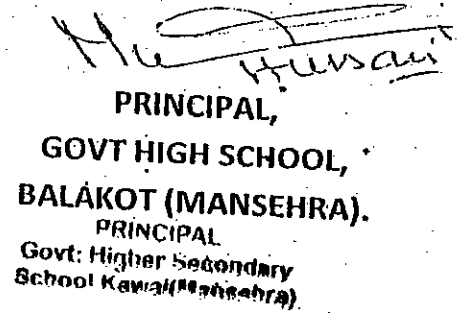 Hussain
PRINCIPAL,
GOVT HIGH SCHOOL,
BALAKOT (MANSEHRA).
PRINCIPAL
Govt: Higher Secondary
School Kawai(Mansehra)